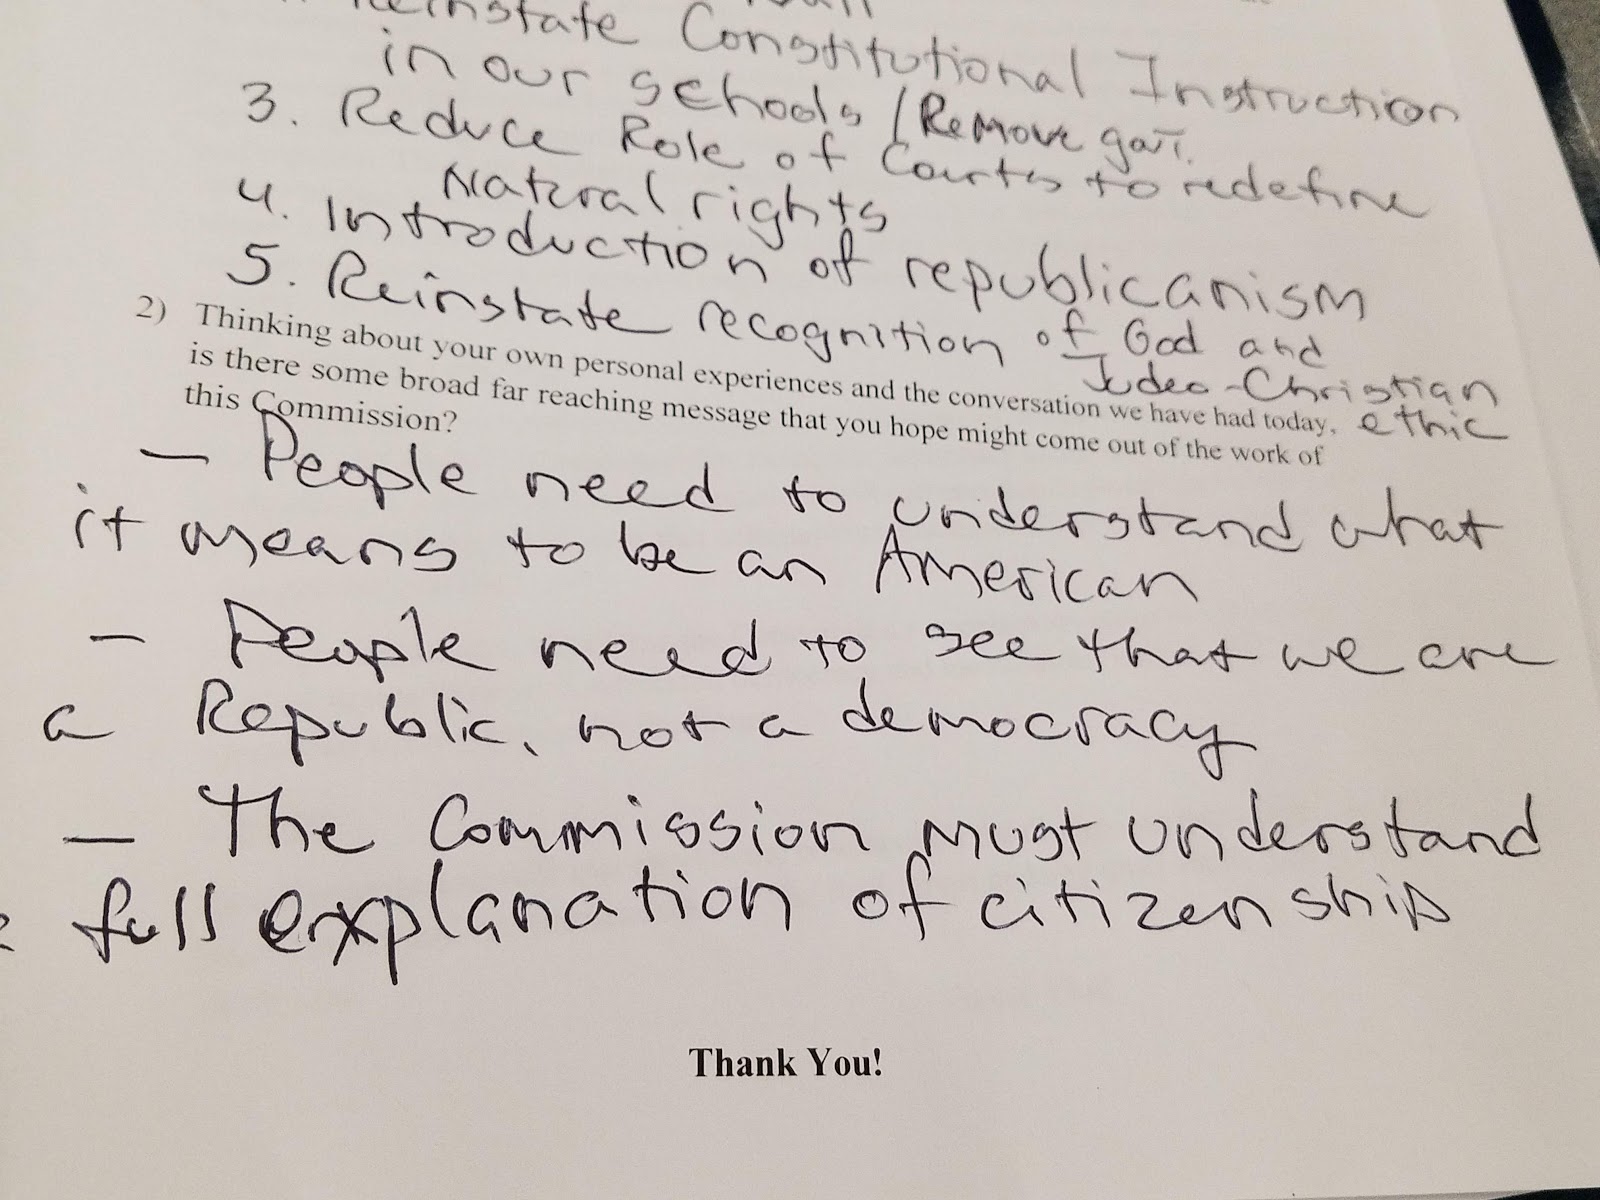 Reinstate Constitutional Instruction
in our schools / Remove gov't.
3. Reduce Role of Courts to redefine
Natural rights
4. Introduction of republicanism
5. Reinstate recognition of God and
Judeo-Christian
ethic
2) Thinking about your own personal experiences and the conversation we have had today,
is there some broad far reaching message that you hope might come out of the work of
this Commission?
— People need to understand what
it means to be an American
— People need to see that we are
a Republic, not a democracy
— The Commission must understand
full explanation of citizenship
Thank You!